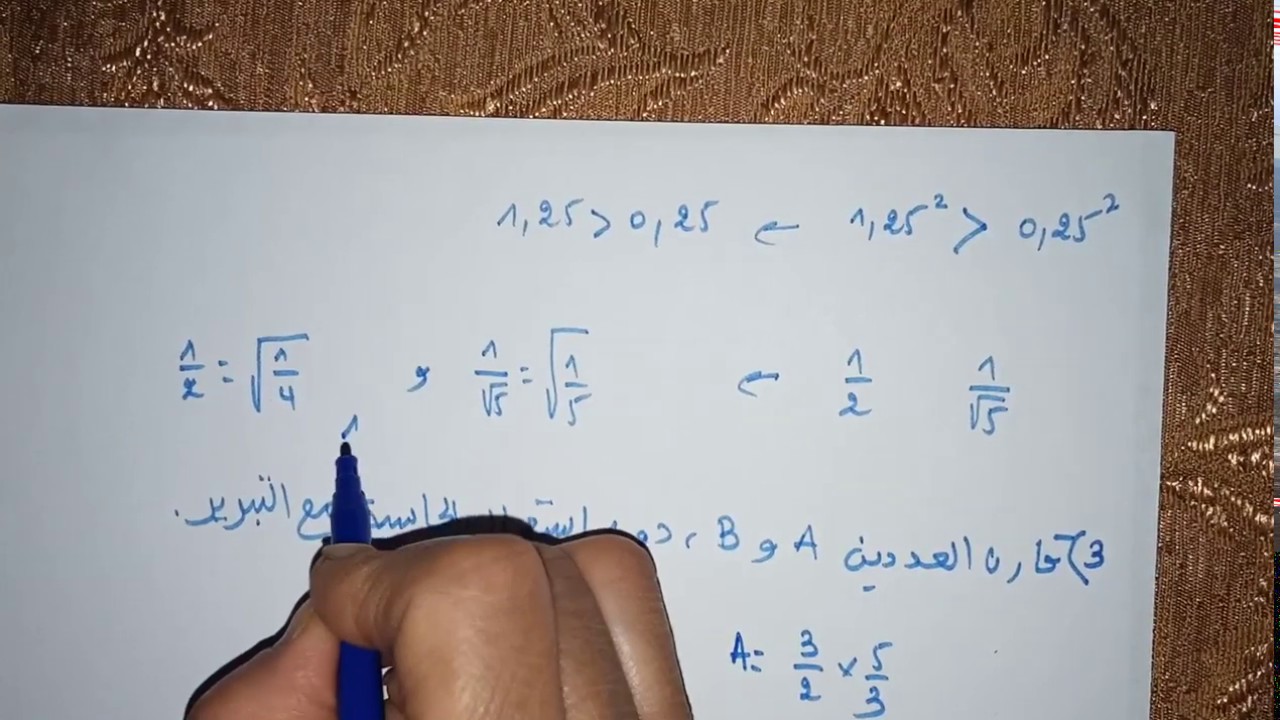 1,25 > 0,25 ← 1,25² > 0,25²
1/2 = √(1/4) و 1/√5 = √(1/5) ← 1/2 1/√5
1
3) قارن العددين A و B، دون مع التبرير.
A = 3/2 × 5/3